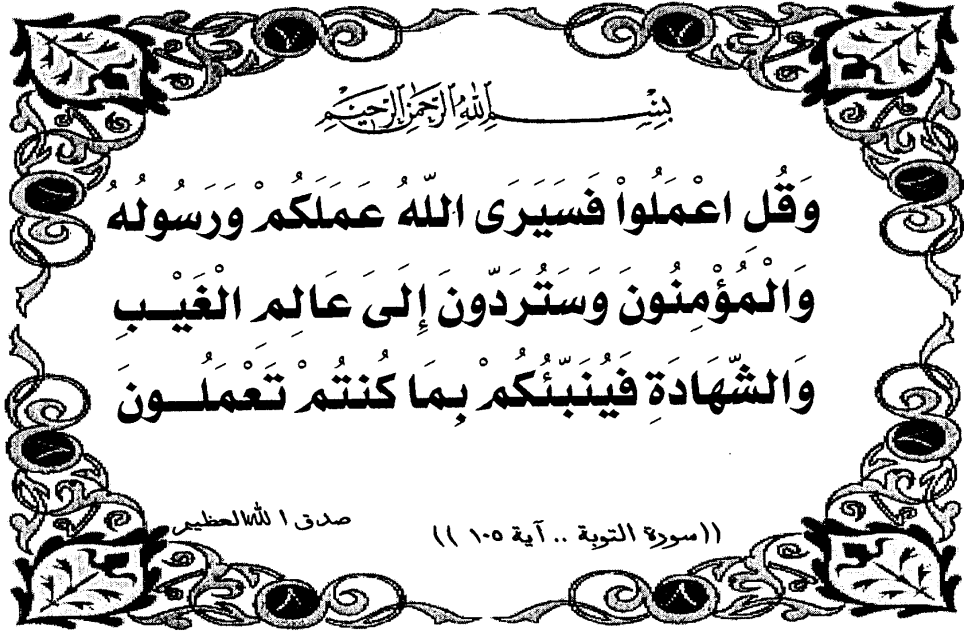 بسم الله الرحمن الرحيم
وَقُلِ اعْمَلُواْ فَسَيَرَى اللّهُ عَمَلَكُمْ وَرَسُولُهُ
وَالْمُؤْمِنُونَ وَسَتُرَدّونَ إِلَىَ عَالِمِ الْغَيْبِ
وَالشّهَادَةِ فَيُنَبّئُكُمْ بِمَا كُنتُمْ تَعْمَلُونَ
((سورة التوبة .. آية ١٠٥ ))
صدق الله العظيم